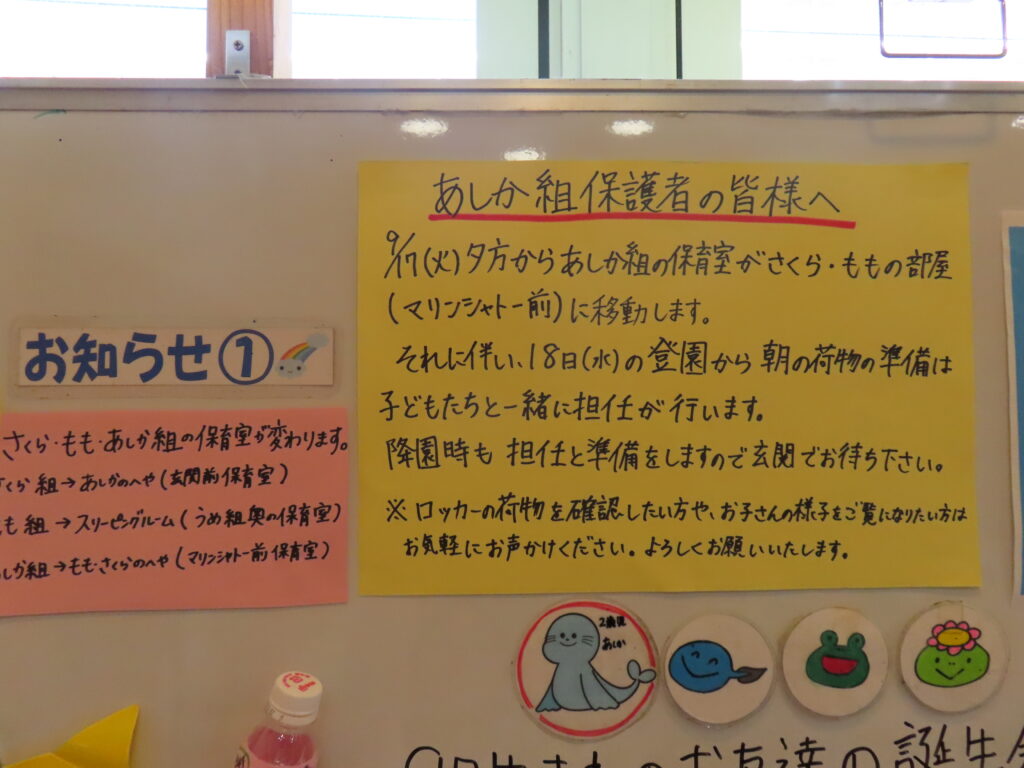 あしか組保護者の皆様へ
9/17(火)夕方からあしか組の保育室がさくら・ももの部屋
(マリンシャトー前)に移動します。
それに伴い、18日(水)の登園から朝の荷物の準備は
子どもたちと一緒に担任が行います。
降園時も担任と準備をしますので玄関でお待ち下さい。
※ロッカーの荷物を確認したい方や、お子さんの様子をご覧になりたい方は
お気軽にお声かけください。よろしくお願いいたします。
お知らせ①
さくら・もも・あしか組の保育室が変わります。
くら組→あしかのへや(玄関前保育室)
も組→スリーピングルーム(うめ組奥の保育室)
しか組→もも・さくらのへや(マリンシャトー前保育室)
2歳児
あしか
お友達の誕生会